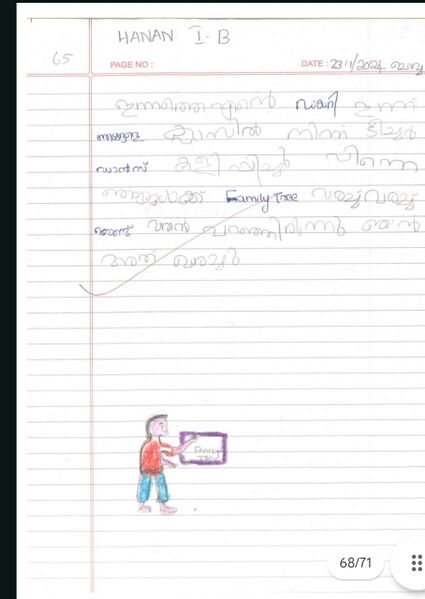 HANAN I-B
65
PAGE NO :
DATE : 23/1/2024 ബുധൻ
ഇന്നത്തെ എന്റെ ഡയറി ഇന്ന്
ഞങ്ങളെ ക്ലാസിൽ നിന്ന് ടീച്ചർ
ഡാൻസ് കളിപ്പിച്ചു പിന്നെ
ഞങ്ങൾക്ക് Family Tree വരച്ച്
വരാൻ പറഞ്ഞിരിന്നു ഞാൻ
അത് വരച്ചു
Family Tree
68/71